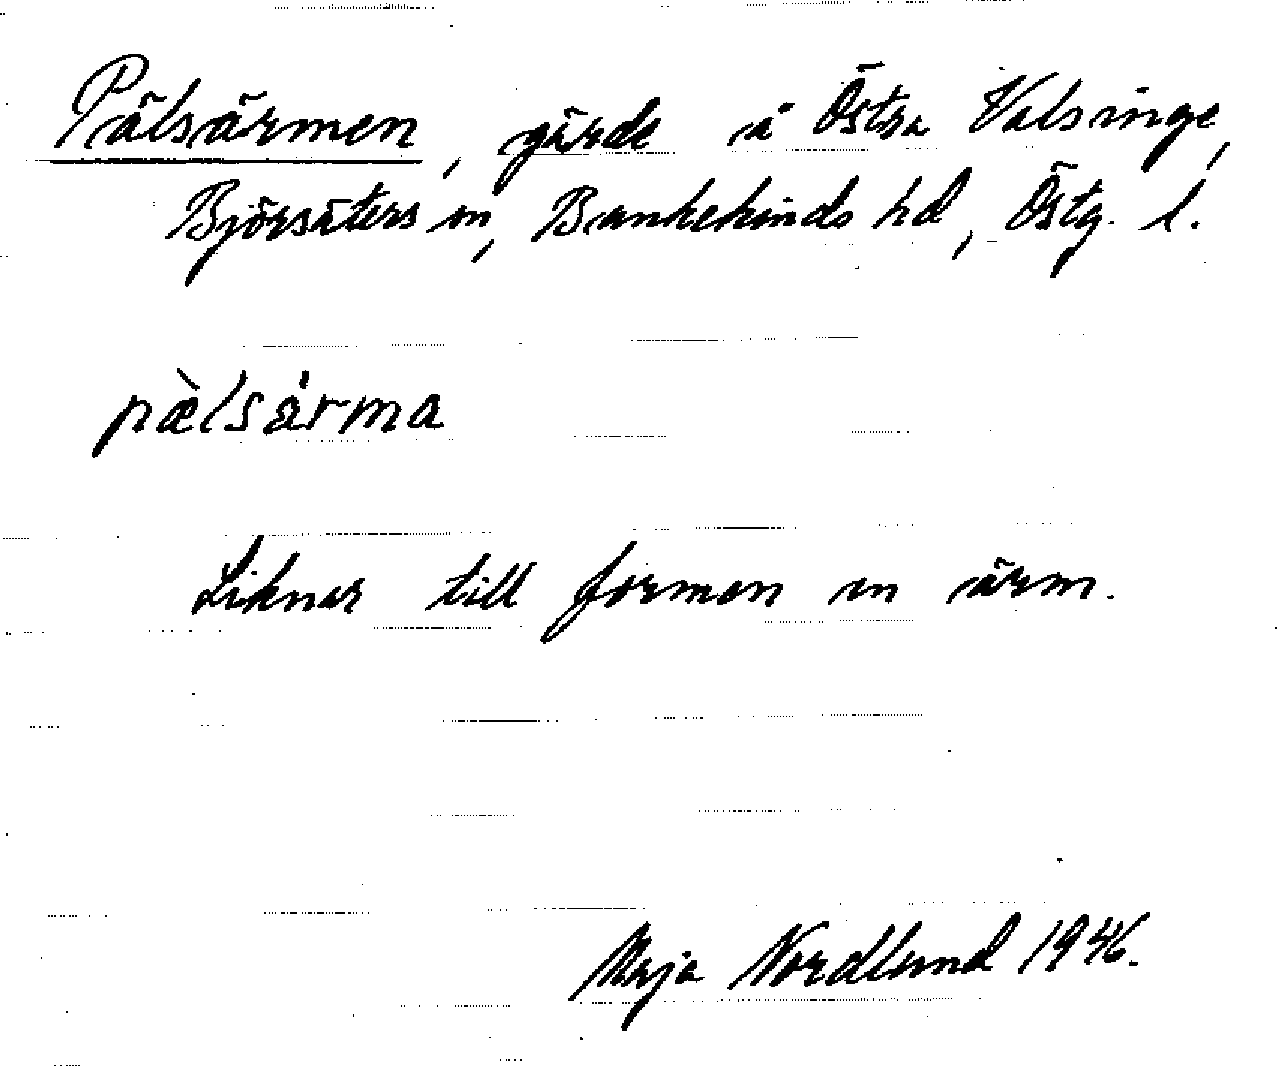 Pälsärmen, gärde å Östra Valsinge,
Björsäters sn, Bankekinds hd, Östg. l.
pæ̀lsárma
Liknar till formen en ärm.
Maja Nordlund 1946.